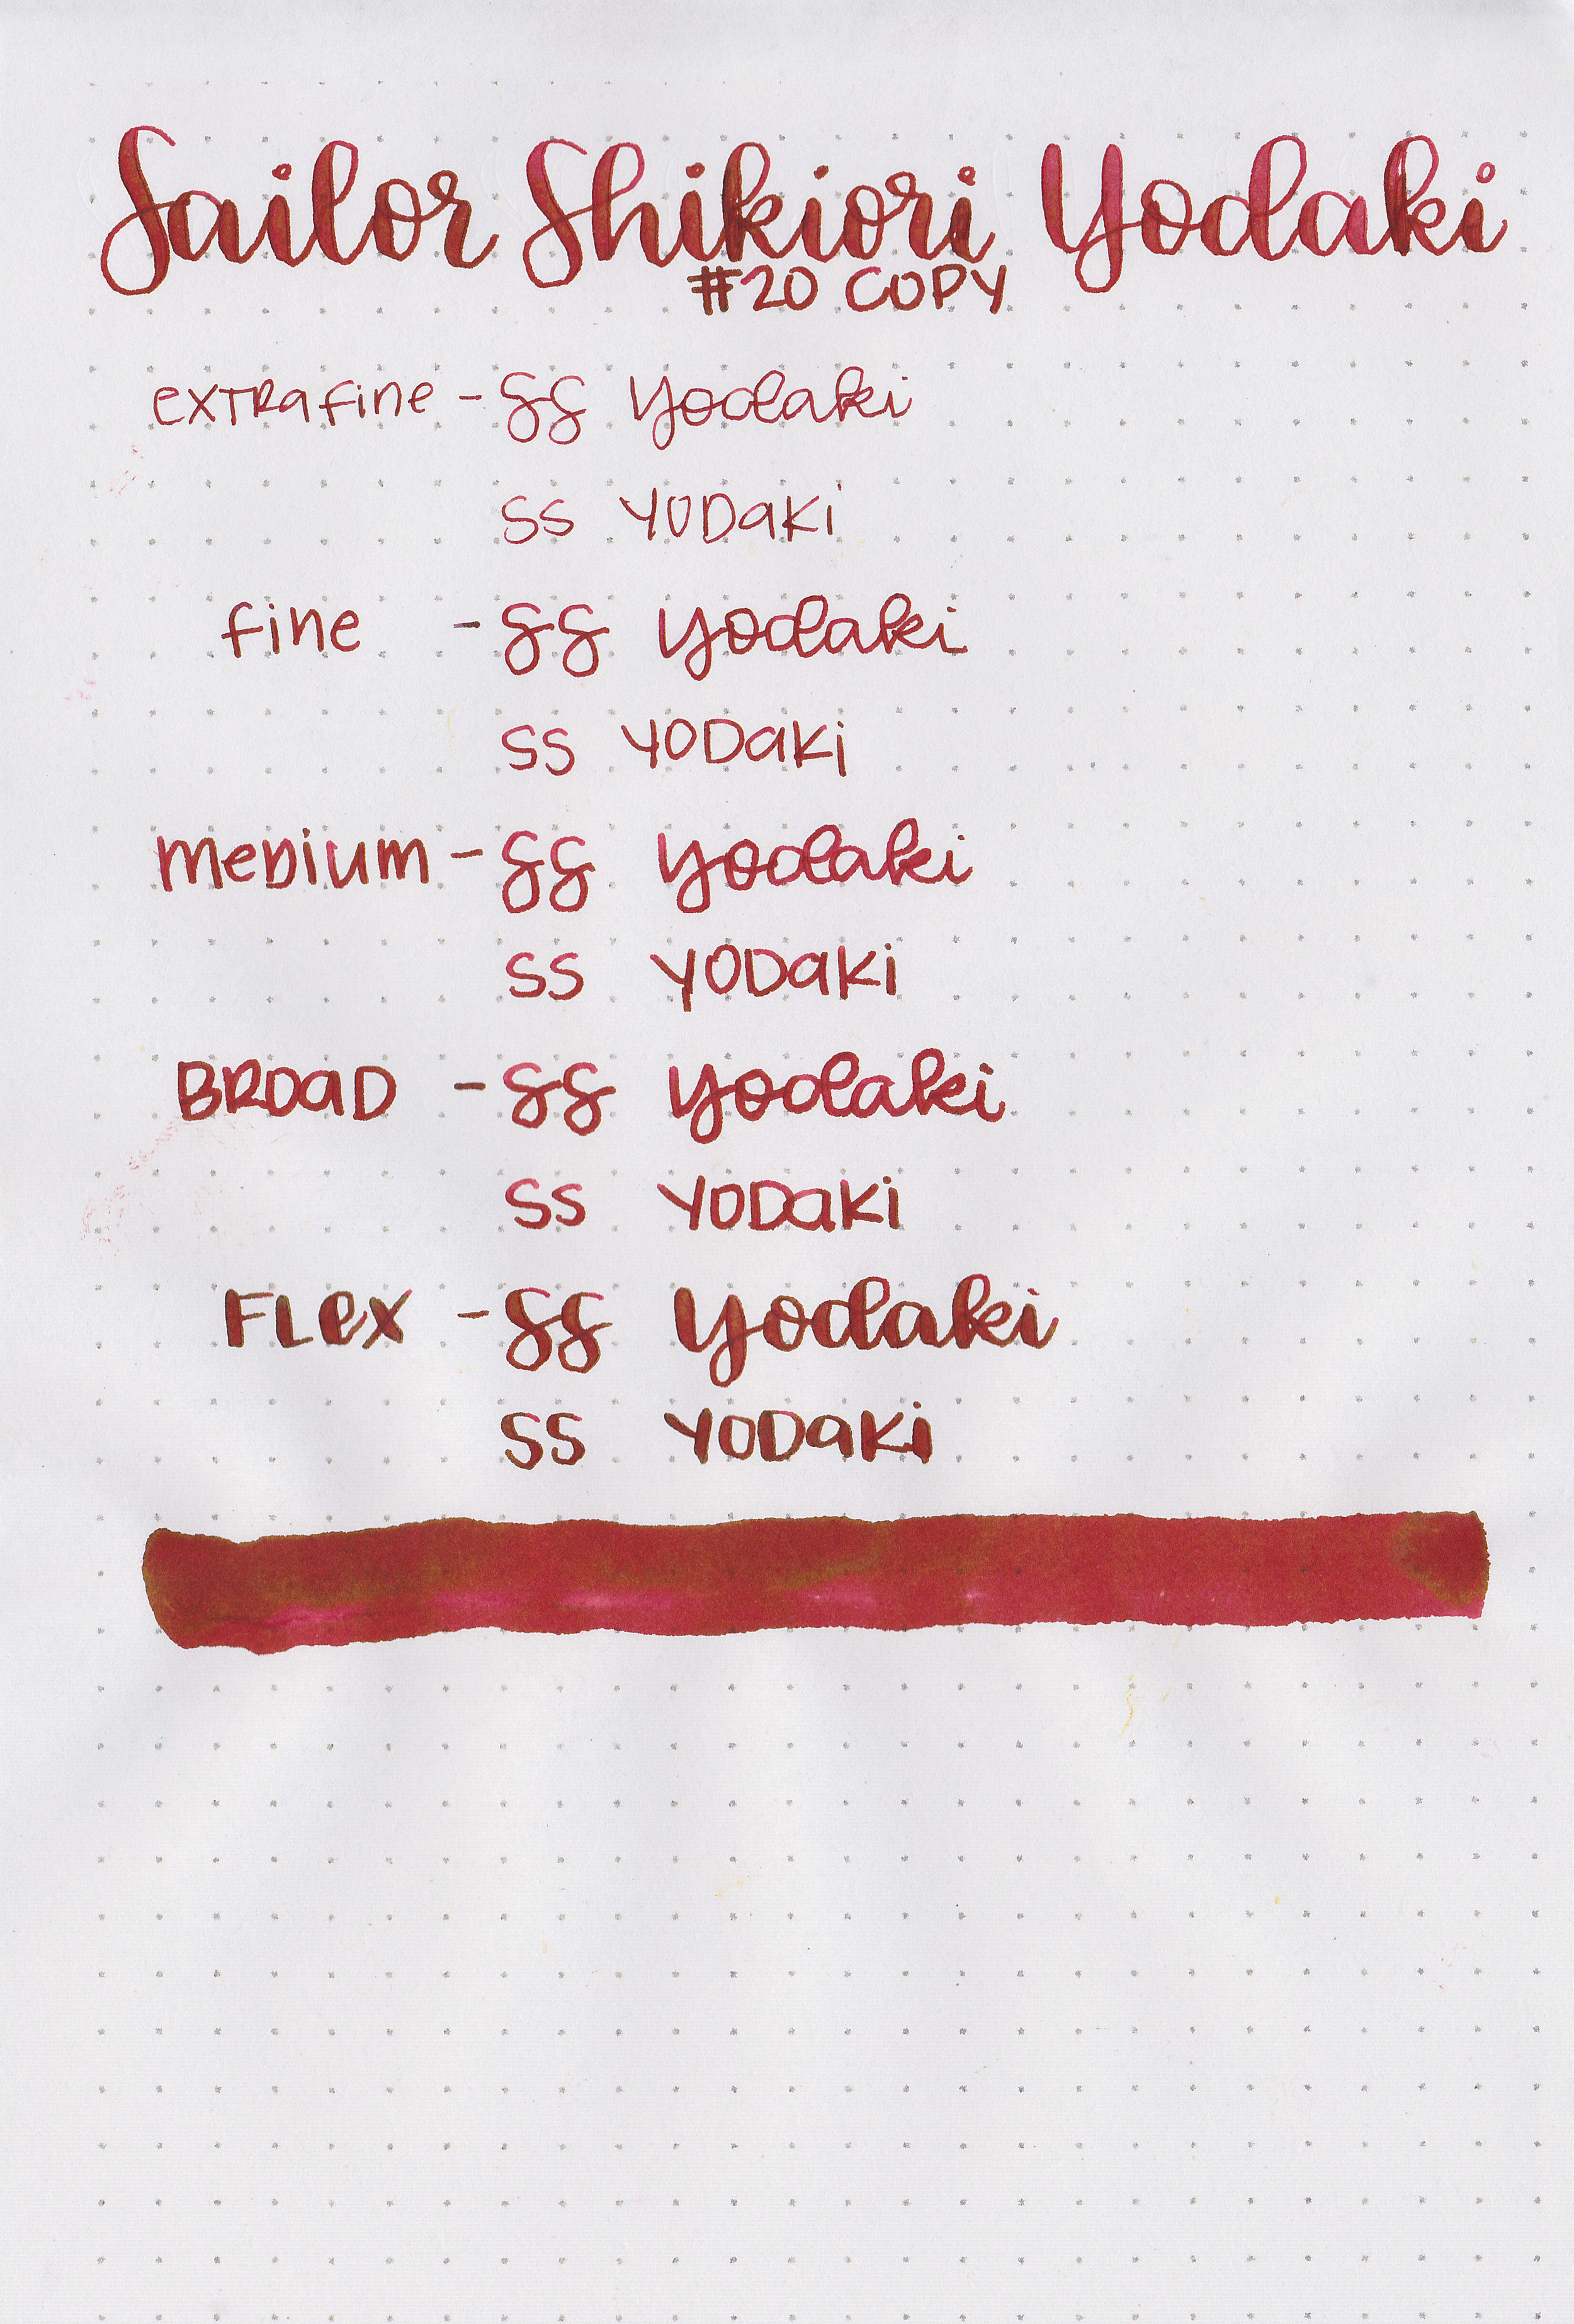 Sailor Shikiori Yodaki
#20 COPY
extrafine - SS Yodaki
SS YODaki
fine - SS Yodaki
SS YODaki
meDium - SS Yodaki
SS YODaki
BROaD - SS Yodaki
SS YODaki
FLex - SS Yodaki
SS YODaki